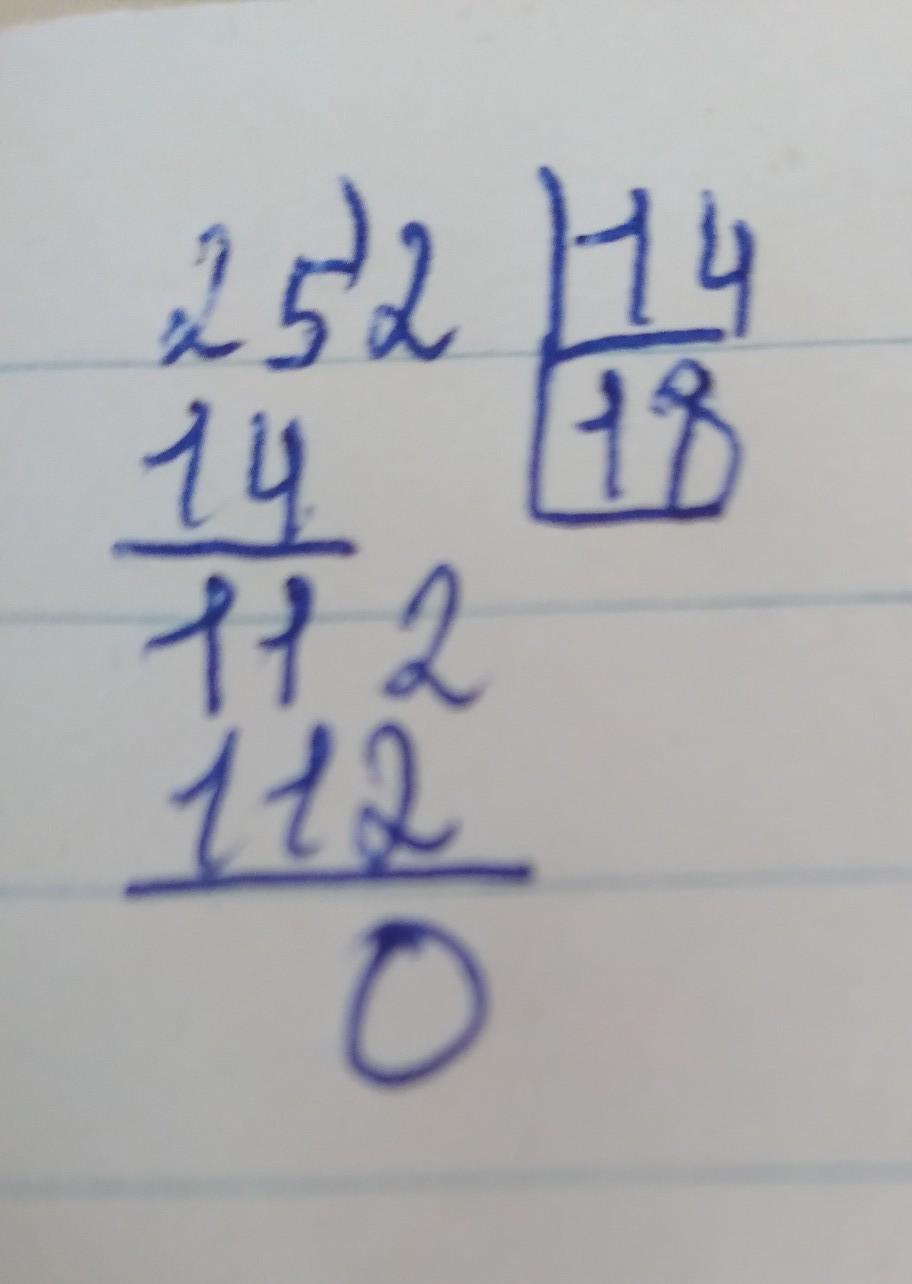 252 14
14 18
112
112
0